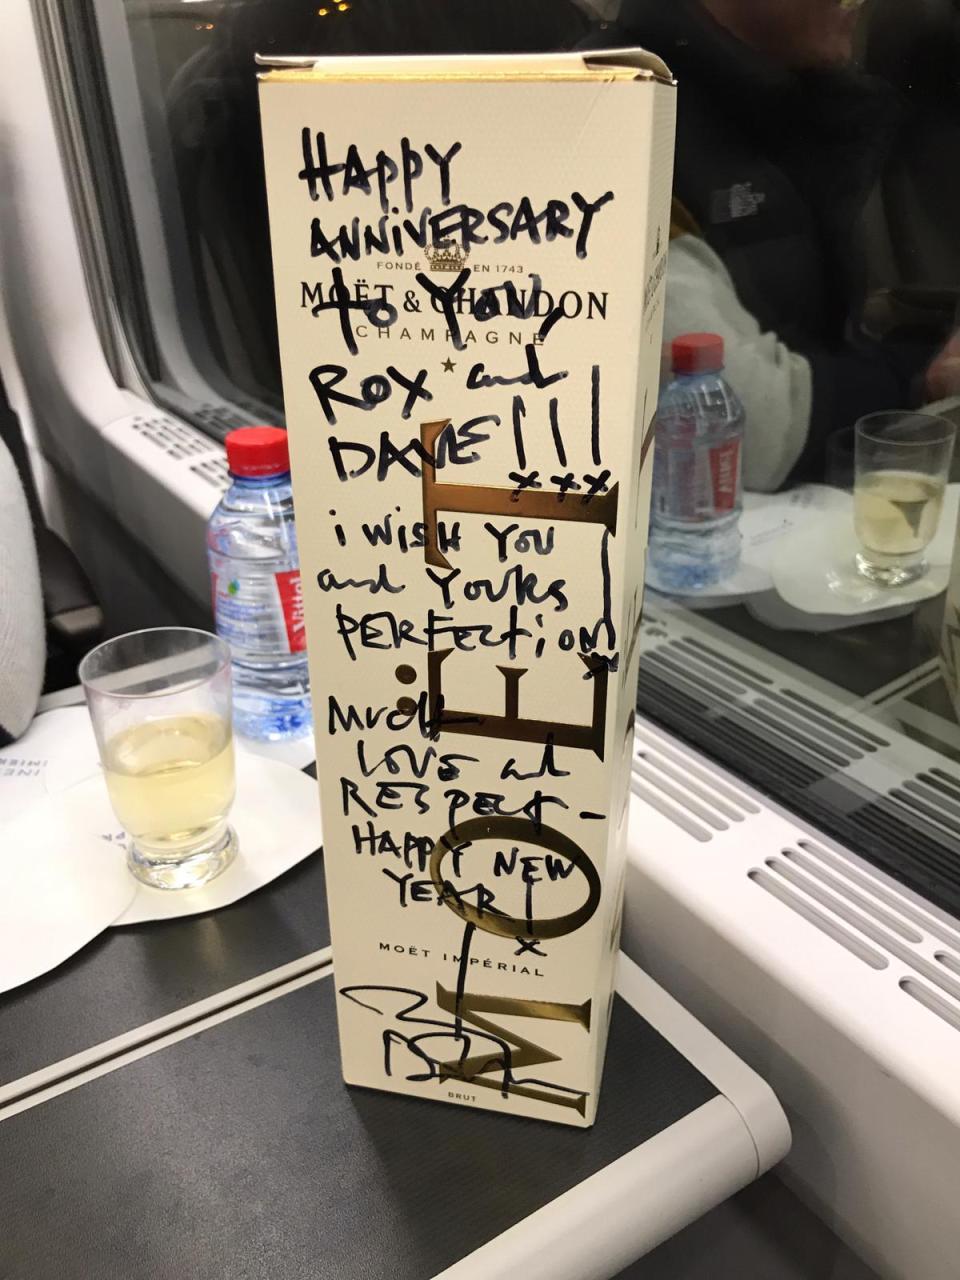 HAPPY
ANNiVERSARY
FONDÉ EN 1743
MOËT & CHANDON
to You,
CHAMPAGNE
ROX and
DAVE!!!
xxx
i WisH You
and YouRs
PERFEctioN!
x
Much
LOVE and
RESpect -
HAPPY NEW
YEAR!
x
MOËT IMPÉRIAL
BRUT
MOËT
Vittel